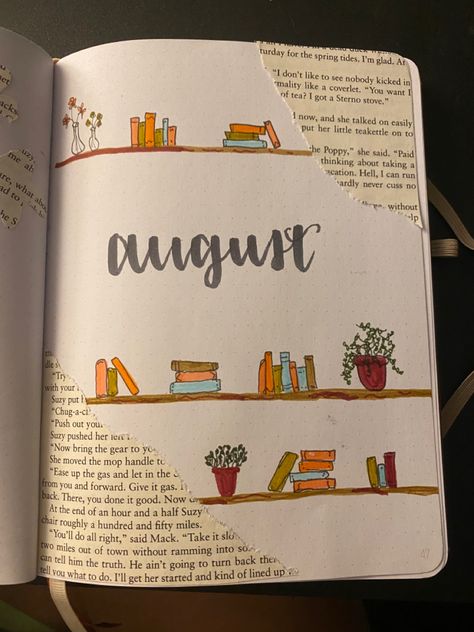 turday for the spring tides. I'm glad. Af
"I don't like to see nobody kicked in
mality like a coverlet. "You want I
of tea? I got a Sterno stove."
now, and she talked on easily
put her little teakettle on to
the Poppy," she said. "Paid
thinking about taking a
cation. Hell, I can run
ardly never cuss no
without
august
"Try
with your
Suzy put
"Chug-a-c
"Push out you
Suzy pushed her left
"Now bring the gear to yo
She moved the mop handle to
"Ease up the gas and let in the c
from you and forward. Give it gas.
back. There, you done it good. Now
At the end of an hour and a half Suzy
chair roughly a hundred and fifty miles.
"You'll do all right," said Mack. "Take it slo
two miles out of town without ramming into so
can tell him the truth. He ain't going to turn back the
tell you what to do. I'll get her started and kind of lined up
47